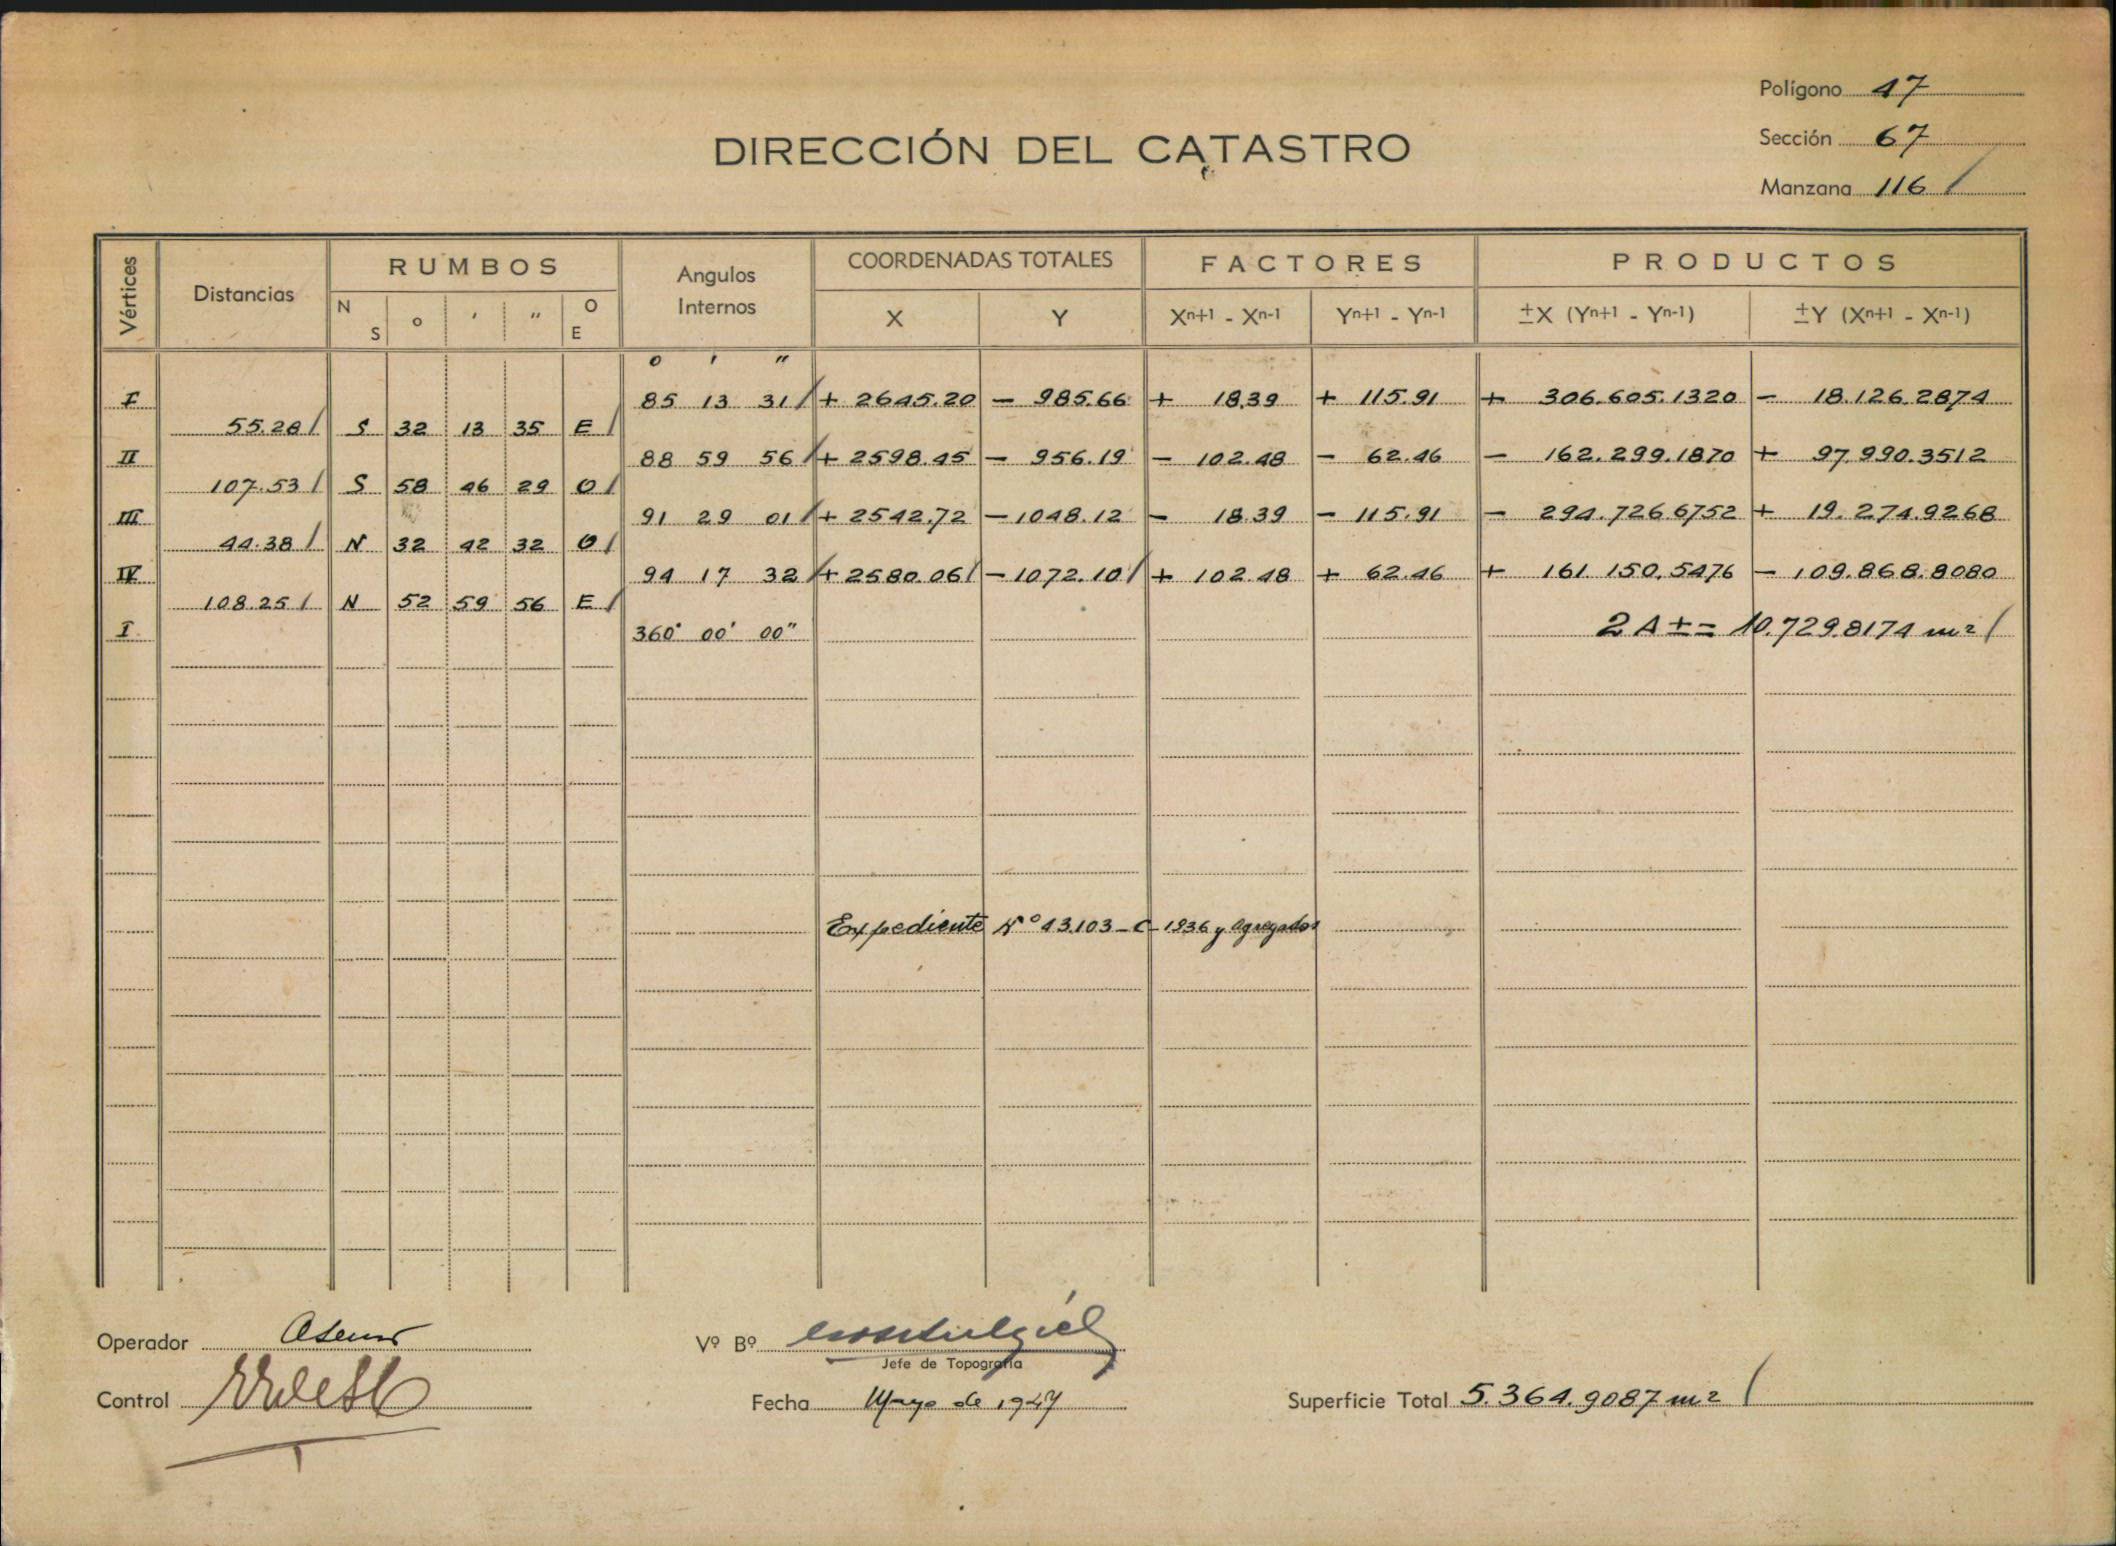 Polígono 47
DIRECCIÓN DEL CATASTRO
Sección 67
Manzana 116 /
Vértices Distancias RUMBOS Angulos Internos COORDENADAS TOTALES FACTORES PRODUCTOS
N S o ′ ″ O E X Y Xⁿ⁺¹ - Xⁿ⁻¹ Yⁿ⁺¹ - Yⁿ⁻¹ ±X (Yⁿ⁺¹ - Yⁿ⁻¹) ±Y (Xⁿ⁺¹ - Xⁿ⁻¹)
o ′ ″
I 85 13 31 / + 2645.20 − 985.66 + 18.39 + 115.91 + 306.605.1320 − 18.126.2874
55.26 / S 32 13 35 E /
II 88 59 56 / + 2598.45 − 956.19 − 102.48 − 62.46 − 162.299.1870 + 97.990.3512
107.53 / S 58 46 29 O /
III 91 29 01 / + 2542.72 − 1048.12 − 18.39 − 115.91 − 294.726.6752 + 19.274.9268
44.38 / N 32 42 32 O /
IV 94 17 32 / + 2580.06 / − 1072.10 / + 102.48 + 62.46 + 161.150.5476 − 109.868.8080
108.25 / N 52 59 56 E /
I 360° 00' 00" 2 A ± = 10.729.8174 m² /
Expediente Nº 43.103 - C - 1936 y agregados
Operador
Vº Bº
Jefe de Topografía
Control
Fecha Mayo de 1947
Superficie Total 5.364.9087 m² /